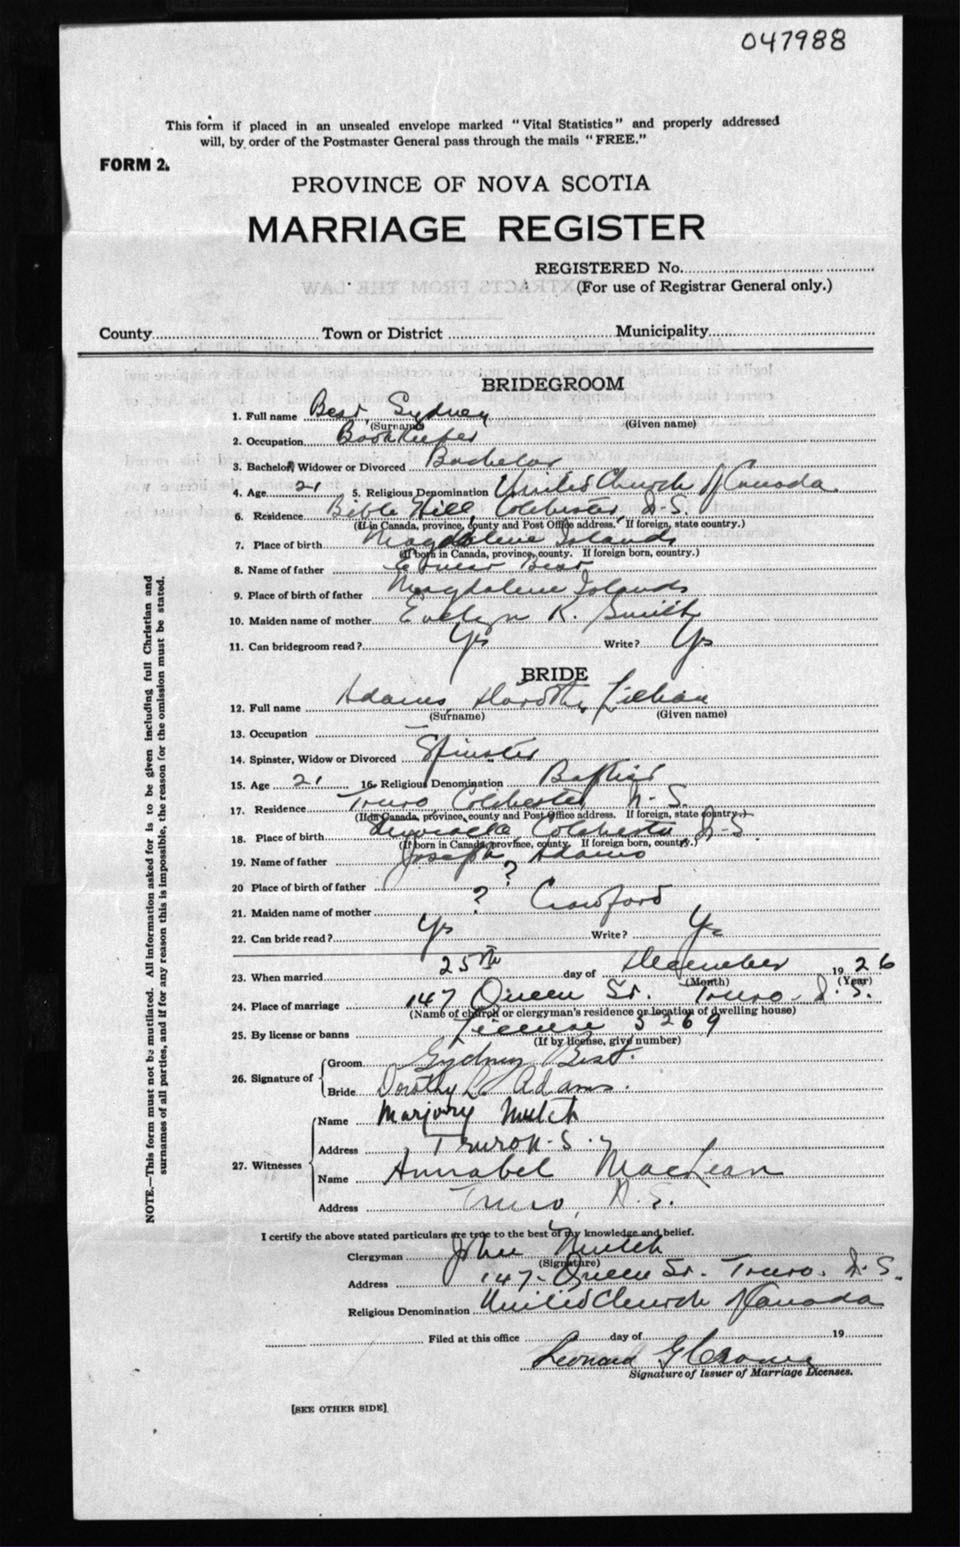 047988
This form if placed in an unsealed envelope marked "Vital Statistics" and properly addressed
will, by order of the Postmaster General pass through the mails "FREE."
FORM 2.
PROVINCE OF NOVA SCOTIA
MARRIAGE REGISTER
REGISTERED No.
(For use of Registrar General only.)
County Town or District Municipality
BRIDEGROOM
1. Full name Best, Sydney
(Surname) (Given name)
2. Occupation Bookkeeper
3. Bachelor, Widower or Divorced Bachelor
4. Age 21 5. Religious Denomination United Church of Canada
6. Residence Bible Hill, Colchester, N.S.
(If in Canada, province, county and Post Office address. If foreign, state country.)
7. Place of birth Magdalene Islands
(If born in Canada, province, county. If foreign born, country.)
8. Name of father Best
9. Place of birth of father Magdalene Islands
10. Maiden name of mother Evelyn K. Smith
11. Can bridegroom read? Yes Write? Yes
BRIDE
12. Full name Adams, Dorothy Lillian
(Surname) (Given name)
13. Occupation -
14. Spinster, Widow or Divorced Spinster
15. Age 21 16. Religious Denomination Baptist
17. Residence Truro Colchester N.S.
(If in Canada, province, county and Post Office address. If foreign, state country.)
18. Place of birth Colchester N.S.
(If born in Canada, province, county. If foreign born, country.)
19. Name of father Joseph Adams
20 Place of birth of father ?
21. Maiden name of mother ? Crawford
22. Can bride read? Yes Write? Yes
23. When married 25th day of December 1926
(Month) (Year)
24. Place of marriage 147 Queen St. Truro, N.S.
(Name of church or clergyman's residence or location of dwelling house)
25. By license or banns License 3269
(If by license, give number)
26. Signature of Groom Sydney Best.
Bride Dorothy L. Adams.
27. Witnesses Name Marjory Mutch
Address Truro N.S.
Name Annabel MacLean
Address Truro, N.S.
I certify the above stated particulars are true to the best of my knowledge and belief.
Clergyman John Mutch
(Signature)
Address 147- Queen St. Truro. N.S.
Religious Denomination United Church of Canada
Filed at this office day of 19
Leonard G Crowe
Signature of Issuer of Marriage Licenses.
[SEE OTHER SIDE]
NOTE.—This form must not be mutilated. All information asked for is to be given including full Christian and
surnames of all parties, and if for any reason this is impossible, the reason for the omission must be stated.